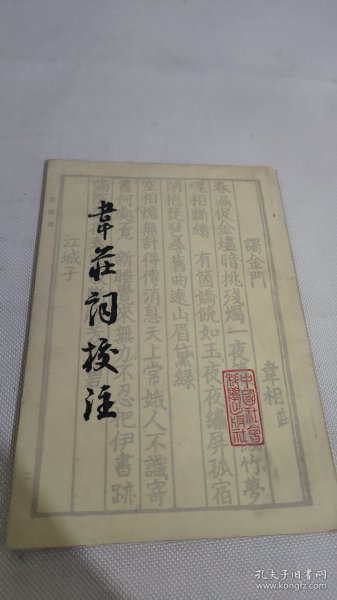 韋莊詞校注
謁金門 韋相
春漏促金燼暗挑殘燭一夜 竹夢
魂相斷續 有箇嬌饒如玉夜夜繡屏孤宿
閑抱琵琶尋舊曲遠山眉黛綠
空相憶無計得傳消息天上常娥人不識寄
書何處覓 新睡覺來無力不忍把伊書跡
滿
江城子
中國社會
科學出版社
孔夫子旧书网
https://www.kongfz.com/